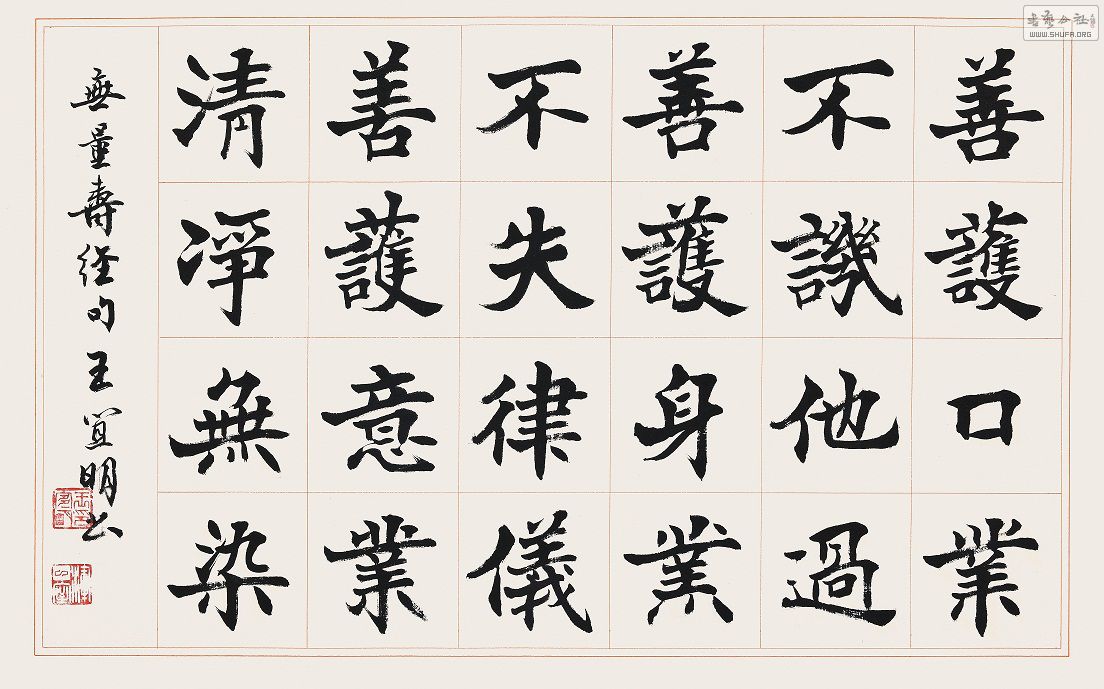 善護口業
不譏他過
善護身業
不失律儀
善護意業
清淨無染
無量壽経句 王宜明书
书艺公社
WWW.SHUFA.ORG